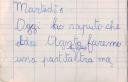 Martedì
Oggi ho saputo che
Agosta faremo
una partita tra